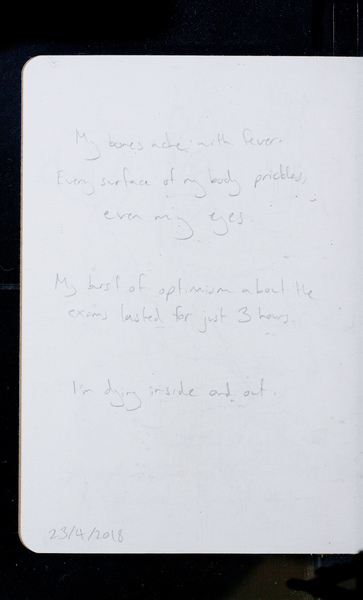 My bones ache with fever.
Every surface of my body prickles,
even my eyes.
My burst of optimism about the
exams lasted for just 3 hours.
I'm dying inside and out.
23/4/2018